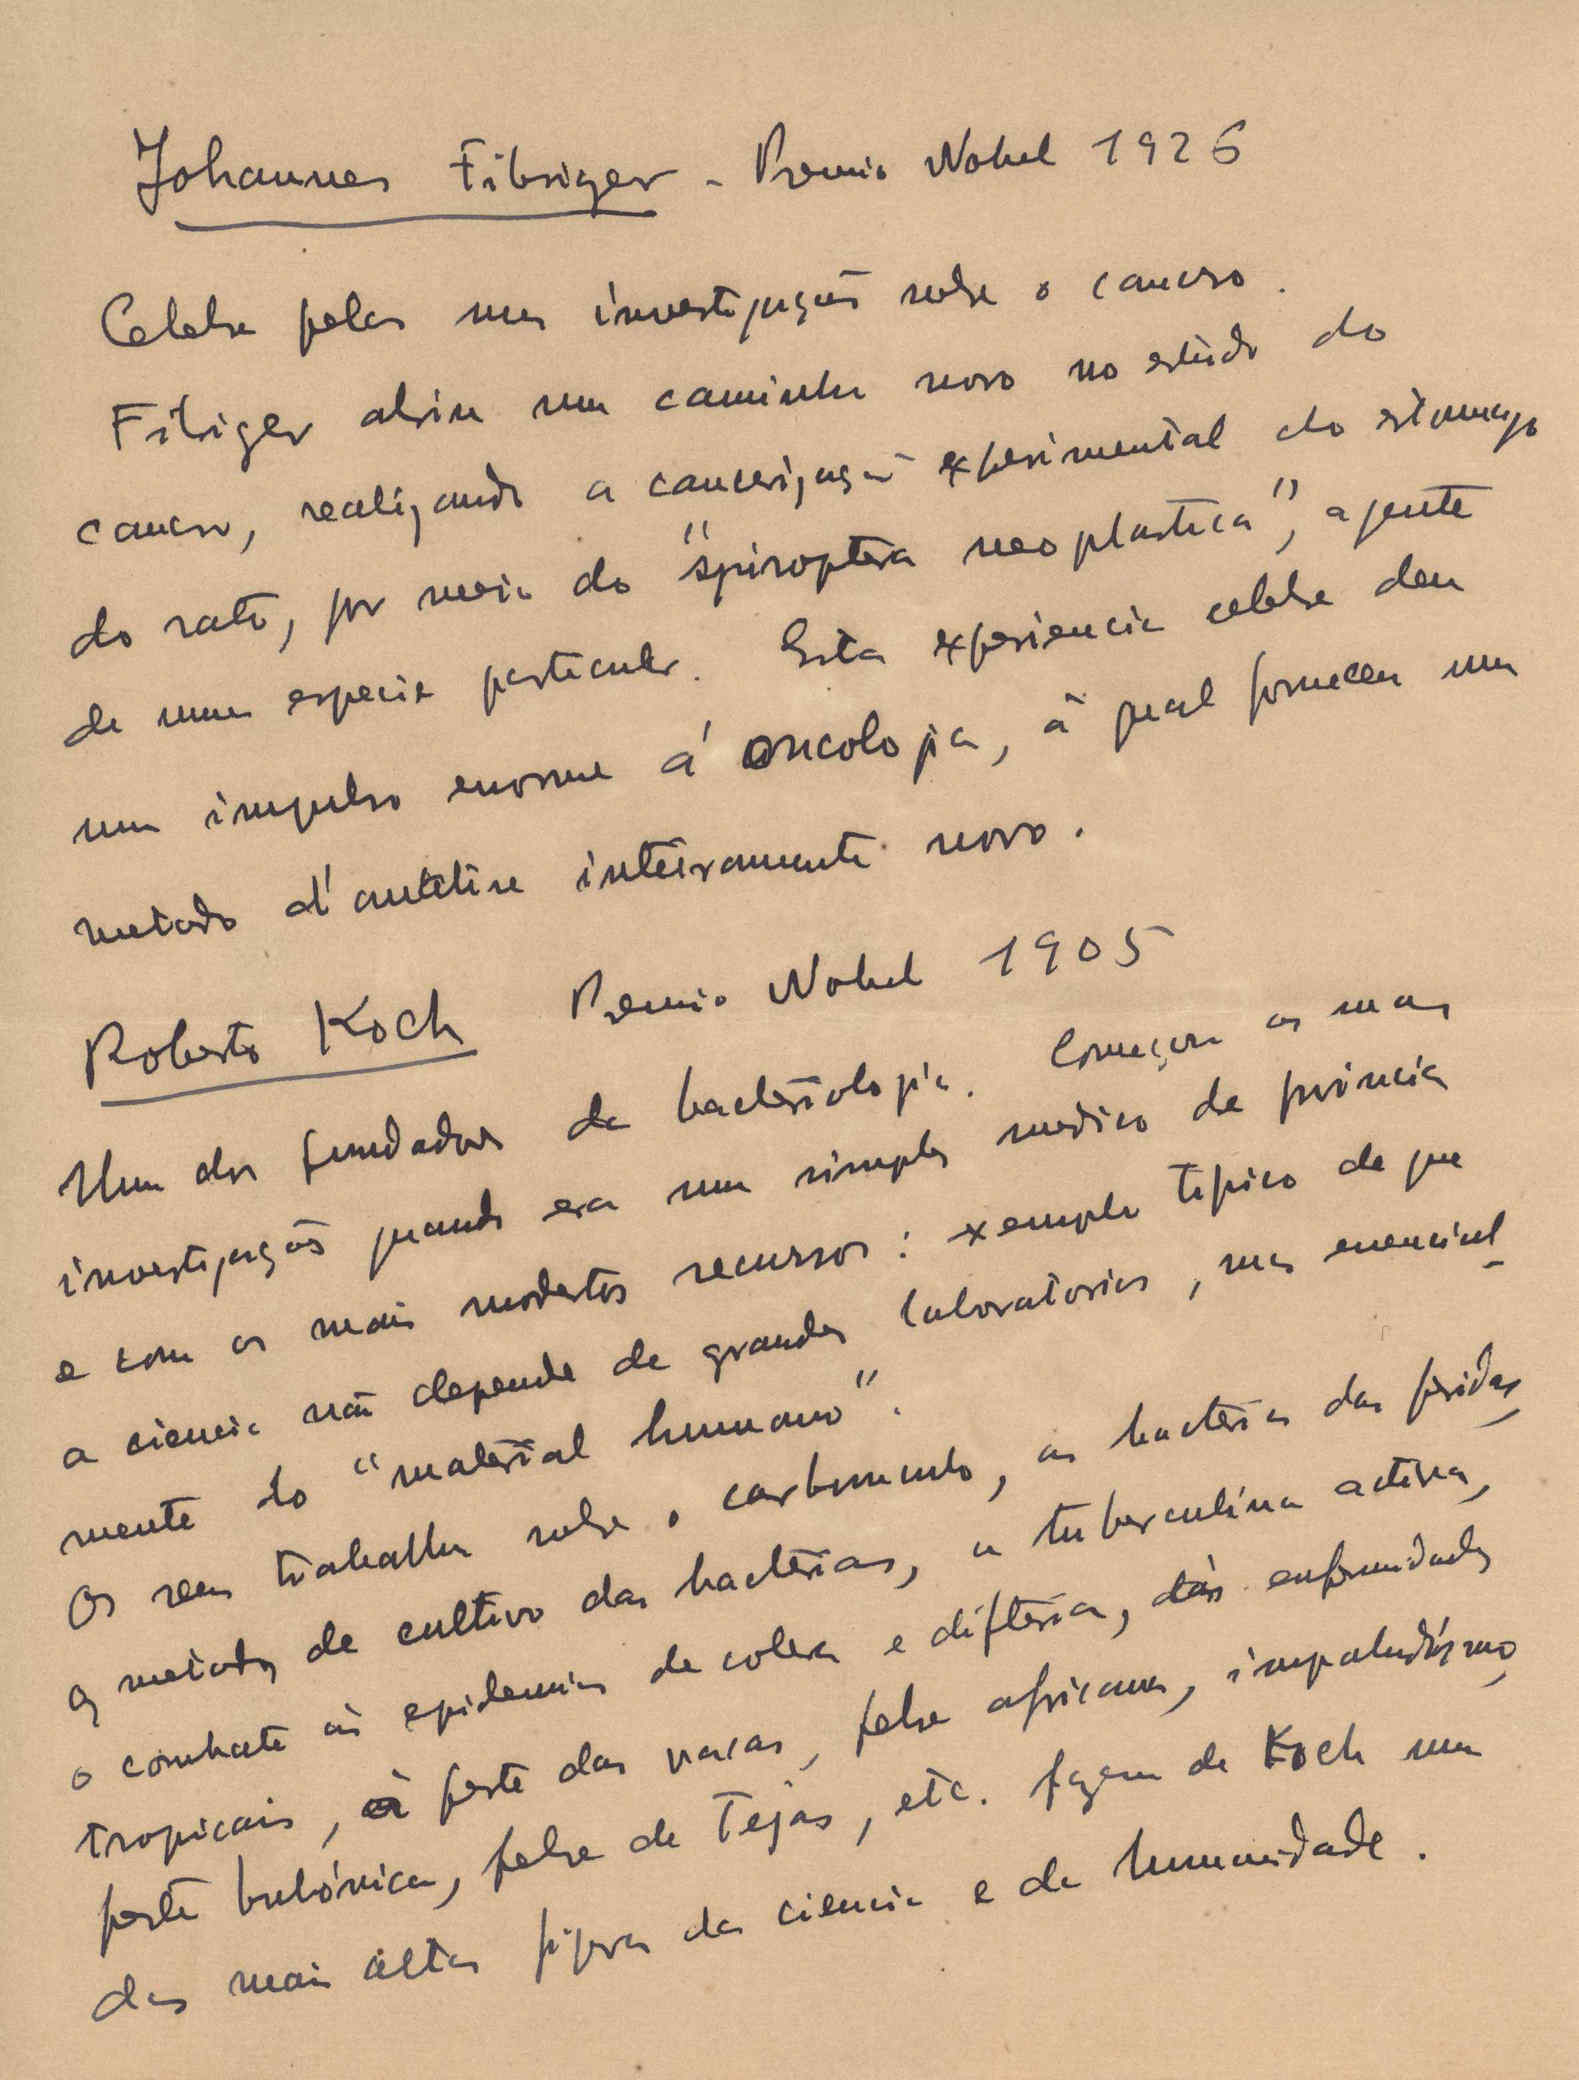 Johannes Fibiger - Premio Nobel 1926
Celebre pelas suas investigações sobre o cancro.
Fibiger abriu um caminho novo no estudo do
cancro, realizando a cancerização experimental do estomago
do rato, por meio do "spiroptera neoplastica", agente
de uma especie particular. Esta experiencia celebre deu
um impulso enorme á oncologia, á qual forneceu um
metodo d'analise inteiramente novo.
Roberto Koch Premio Nobel 1905
Um dos fundadores da bacteriologia. Começou as suas
investigações quando era um simples medico de provincia
e com os mais modestos recursos: exemplo tipico de que
a ciencia não depende de grandes laboratorios, mas essencial-
mente do "material humano".
Os seus trabalhos sobre o carbunculo, as bacterias das feridas,
os metodos de cultivo das bacterias, a tuberculina activa,
o combate ás epidemias de colera e difteria, ás enfermidades
tropicais, á peste das vacas, febre africana, impaludismo,
peste bubónica, febre de Tejas, etc. fazem de Koch uma
das mais altas figuras da ciencia e da humanidade.